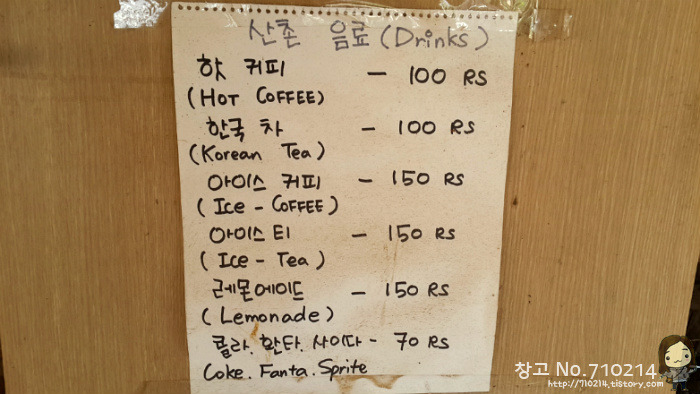 산촌 음료 (Drinks)
핫 커피 - 100 RS
(HOT COFFEE)
한국 차 - 100 RS
(Korean Tea)
아이스 커피 - 150 RS
(Ice - COFFEE)
아이스 티 - 150 RS
(Ice - Tea)
레몬에이드 - 150 RS
(Lemonade)
콜라. 환타. 사이다 - 70 RS
Coke. Fanta. Sprite
창고 No.710214
http://710214.tistory.com